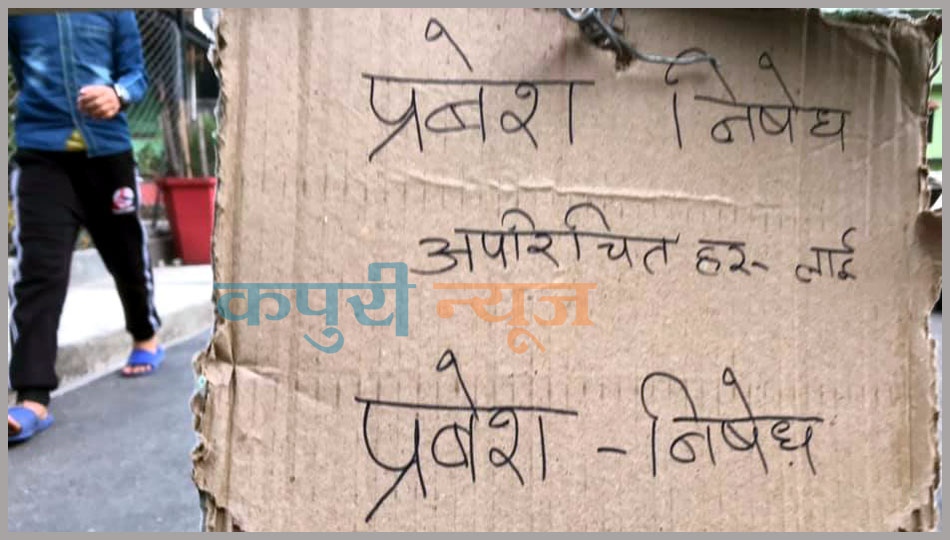 प्रबेश निषेध
अपरिचित हरु लाई
कपुरी न्यूज
प्रबेश - निषेध